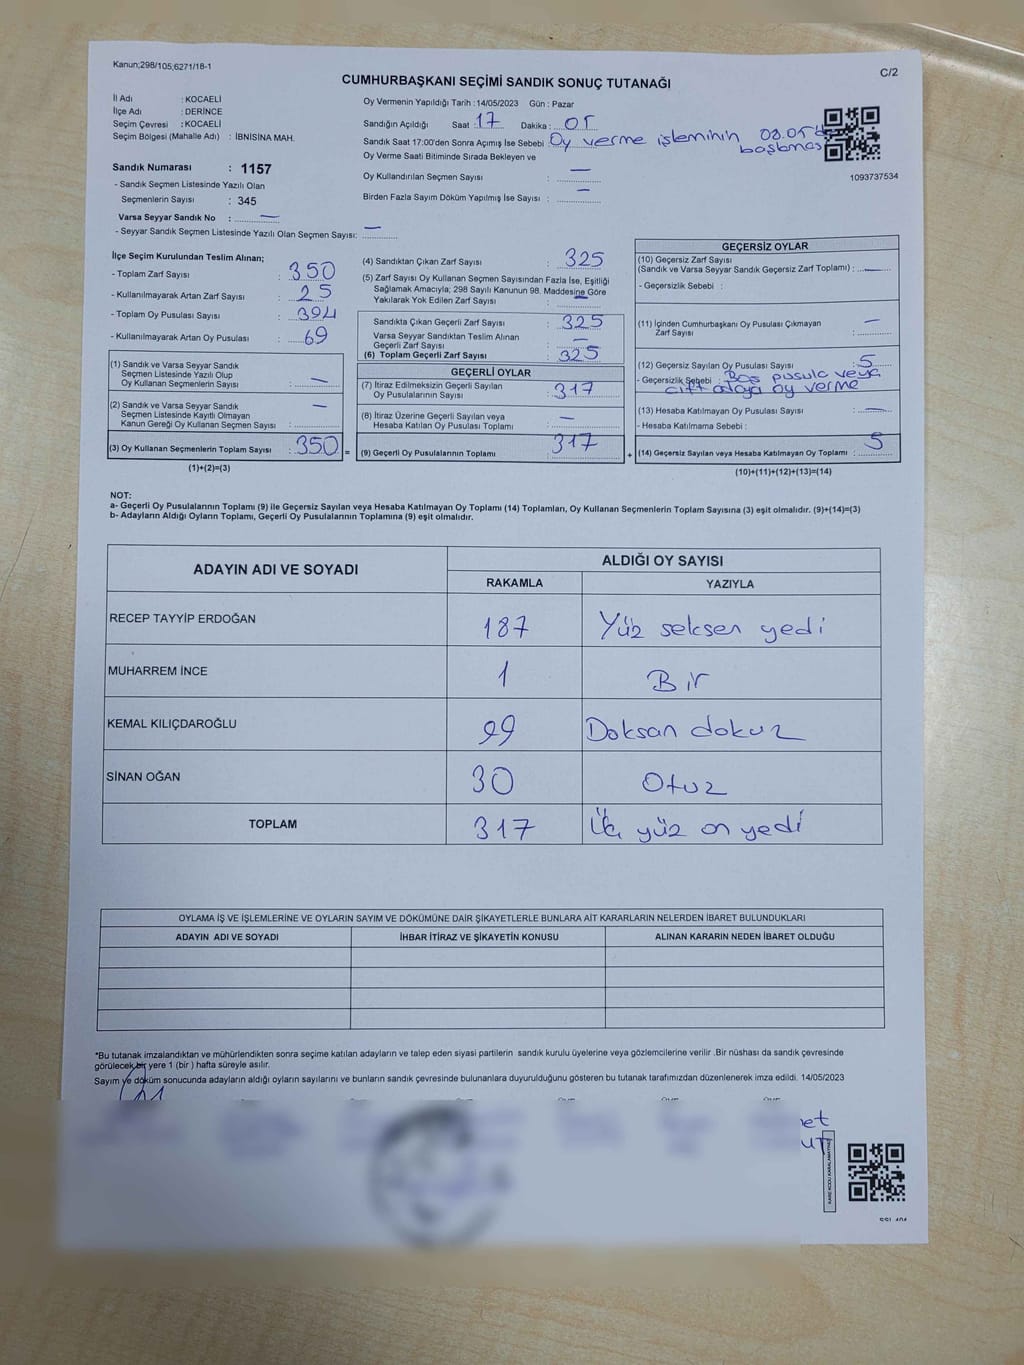 Kanun;298/105;6271/18-1
C/2
CUMHURBAŞKANI SEÇİMİ SANDIK SONUÇ TUTANAĞI
İl Adı : KOCAELİ
İlçe Adı : DERİNCE
Seçim Çevresi : KOCAELİ
Seçim Bölgesi (Mahalle Adı) : İBNİSİNA MAH.
Oy Vermenin Yapıldığı Tarih : 14/05/2023 Gün : Pazar
Sandığın Açıldığı Saat : 17 Dakika : 05
Sandık Saat 17:00'den Sonra Açımış İse Sebebi : Oy verme işleminin 08.05'de
başlaması
Oy Verme Saati Bitiminde Sırada Bekleyen ve
Oy Kullandırılan Seçmen Sayısı : —
Birden Fazla Sayım Döküm Yapılmış İse Sayısı : —
1093737534
Sandık Numarası : 1157
- Sandık Seçmen Listesinde Yazılı Olan
Seçmenlerin Sayısı : 345
Varsa Seyyar Sandık No : —
- Seyyar Sandık Seçmen Listesinde Yazılı Olan Seçmen Sayısı: —
İlçe Seçim Kurulundan Teslim Alınan;
- Toplam Zarf Sayısı : 350
- Kullanılmayarak Artan Zarf Sayısı : 25
- Toplam Oy Pusulası Sayısı : 394
- Kullanılmayarak Artan Oy Pusulası : 69
(1) Sandık ve Varsa Seyyar Sandık
Seçmen Listesinde Yazılı Olup
Oy Kullanan Seçmenlerin Sayısı : —
(2) Sandık ve Varsa Seyyar Sandık
Seçmen Listesinde Kayıtlı Olmayan
Kanun Gereği Oy Kullanan Seçmen Sayısı : —
(3) Oy Kullanan Seçmenlerin Toplam Sayısı : 350 =
(1)+(2)=(3)
(4) Sandıktan Çıkan Zarf Sayısı : 325
(5) Zarf Sayısı Oy Kullanan Seçmen Sayısından Fazla İse, Eşitliği
Sağlamak Amacıyla; 298 Sayılı Kanunun 98. Maddesine Göre
Yakılarak Yok Edilen Zarf Sayısı : —
Sandıkta Çıkan Geçerli Zarf Sayısı : 325
Varsa Seyyar Sandıktan Teslim Alınan
Geçerli Zarf Sayısı : —
(6) Toplam Geçerli Zarf Sayısı : 325
GEÇERLİ OYLAR
(7) İtiraz Edilmeksizin Geçerli Sayılan
Oy Pusulalarının Sayısı : 317
(8) İtiraz Üzerine Geçerli Sayılan veya
Hesaba Katılan Oy Pusulası Toplamı : —
(9) Geçerli Oy Pusulalarının Toplamı : 317 +
GEÇERSİZ OYLAR
(10) Geçersiz Zarf Sayısı
(Sandık ve Varsa Seyyar Sandık Geçersiz Zarf Toplamı) : —
- Geçersizlik Sebebi :
(11) İçinden Cumhurbaşkanı Oy Pusulası Çıkmayan
Zarf Sayısı : —
(12) Geçersiz Sayılan Oy Pusulası Sayısı : 5
- Geçersizlik Sebebi : Boş pusula veya
çift adaya oy verme
(13) Hesaba Katılmayan Oy Pusulası Sayısı : —
- Hesaba Katılmama Sebebi :
(14) Geçersiz Sayılan veya Hesaba Katılmayan Oy Toplamı : 5
(10)+(11)+(12)+(13)=(14)
NOT:
a- Geçerli Oy Pusulalarının Toplamı (9) ile Geçersiz Sayılan veya Hesaba Katılmayan Oy Toplamı (14) Toplamları, Oy Kullanan Seçmenlerin Toplam Sayısına (3) eşit olmalıdır. (9)+(14)=(3)
b- Adayların Aldığı Oyların Toplamı, Geçerli Oy Pusulalarının Toplamına (9) eşit olmalıdır.
ADAYIN ADI VE SOYADI
ALDIĞI OY SAYISI
RAKAMLA YAZIYLA
RECEP TAYYİP ERDOĞAN 187 Yüz seksen yedi
MUHARREM İNCE 1 Bir
KEMAL KILIÇDAROĞLU 99 Doksan dokuz
SİNAN OĞAN 30 Otuz
TOPLAM 317 Üç yüz on yedi
OYLAMA İŞ VE İŞLEMLERİNE VE OYLARIN SAYIM VE DÖKÜMÜNE DAİR ŞİKAYETLERLE BUNLARA AİT KARARLARIN NELERDEN İBARET BULUNDUKLARI
ADAYIN ADI VE SOYADI İHBAR İTİRAZ VE ŞİKAYETİN KONUSU ALINAN KARARIN NEDEN İBARET OLDUĞU
*Bu tutanak imzalandıktan ve mühürlendikten sonra seçime katılan adayların ve talep eden siyasi partilerin sandık kurulu üyelerine veya gözlemcilerine verilir .Bir nüshası da sandık çevresinde
görülecek bir yere 1 (bir ) hafta süreyle asılır.
Sayım ve döküm sonucunda adayların aldığı oyların sayılarını ve bunların sandık çevresinde bulunanlara duyurulduğunu gösteren bu tutanak tarafımızdan düzenlenerek imza edildi. 14/05/2023